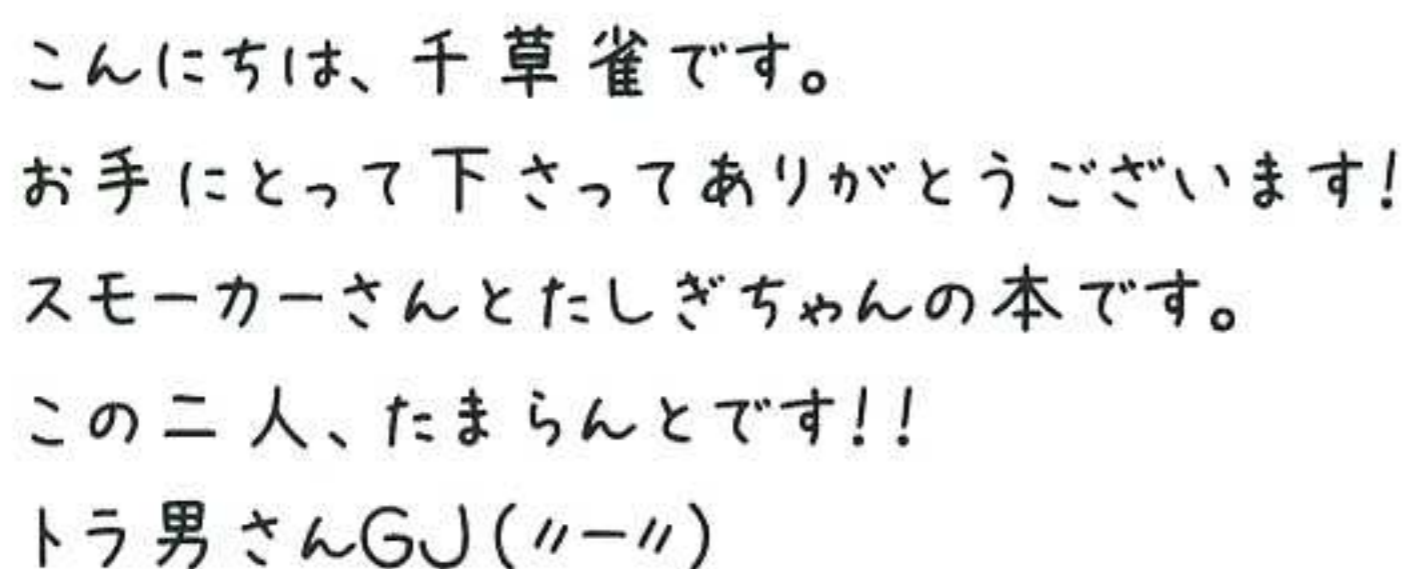 こんにちは、千草雀です。
お手にとって下さってありがとうございます!
スモーカーさんとたしぎちゃんの本です。
この二人、たまらんとです!!
トラ男さんGJ(〃ー〃)